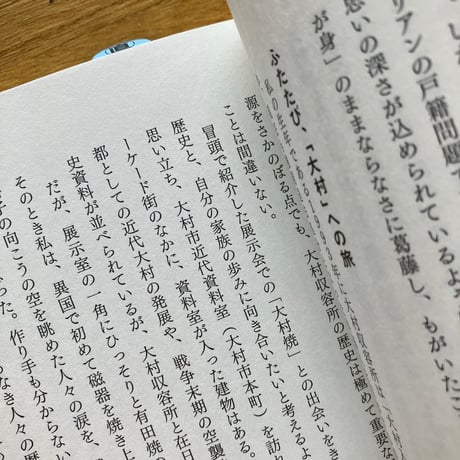 し
リアンの戸籍問題で
思いの深さが込められているよう
が身」のままならなさに葛藤し、もがいたこ
ふたたび、「大村」への旅
私の生年である1996年に大村収容所は
源をさかのぼる点でも、大村収容所の歴史は極めて重要な
ことは間違いない。
冒頭で紹介した展示会での「大村焼」との出会いをき
歴史と、自分の家族の歩みに向き合いたいと考えるよ
思い立ち、大村市近代資料室（大村市本町）を訪
ーケード街のなかに、資料室が入った建物はある。
都としての近代大村の発展や、戦争末期の空襲
史資料が並べられているが、大村収容所と在日
だが、展示室の一角にひっそりと有田焼の
そのとき私は、異国で初めて磁器を焼き上
の向こうの空を眺めた人々の涙を、
った。作り手も分からない
なき人々の歴